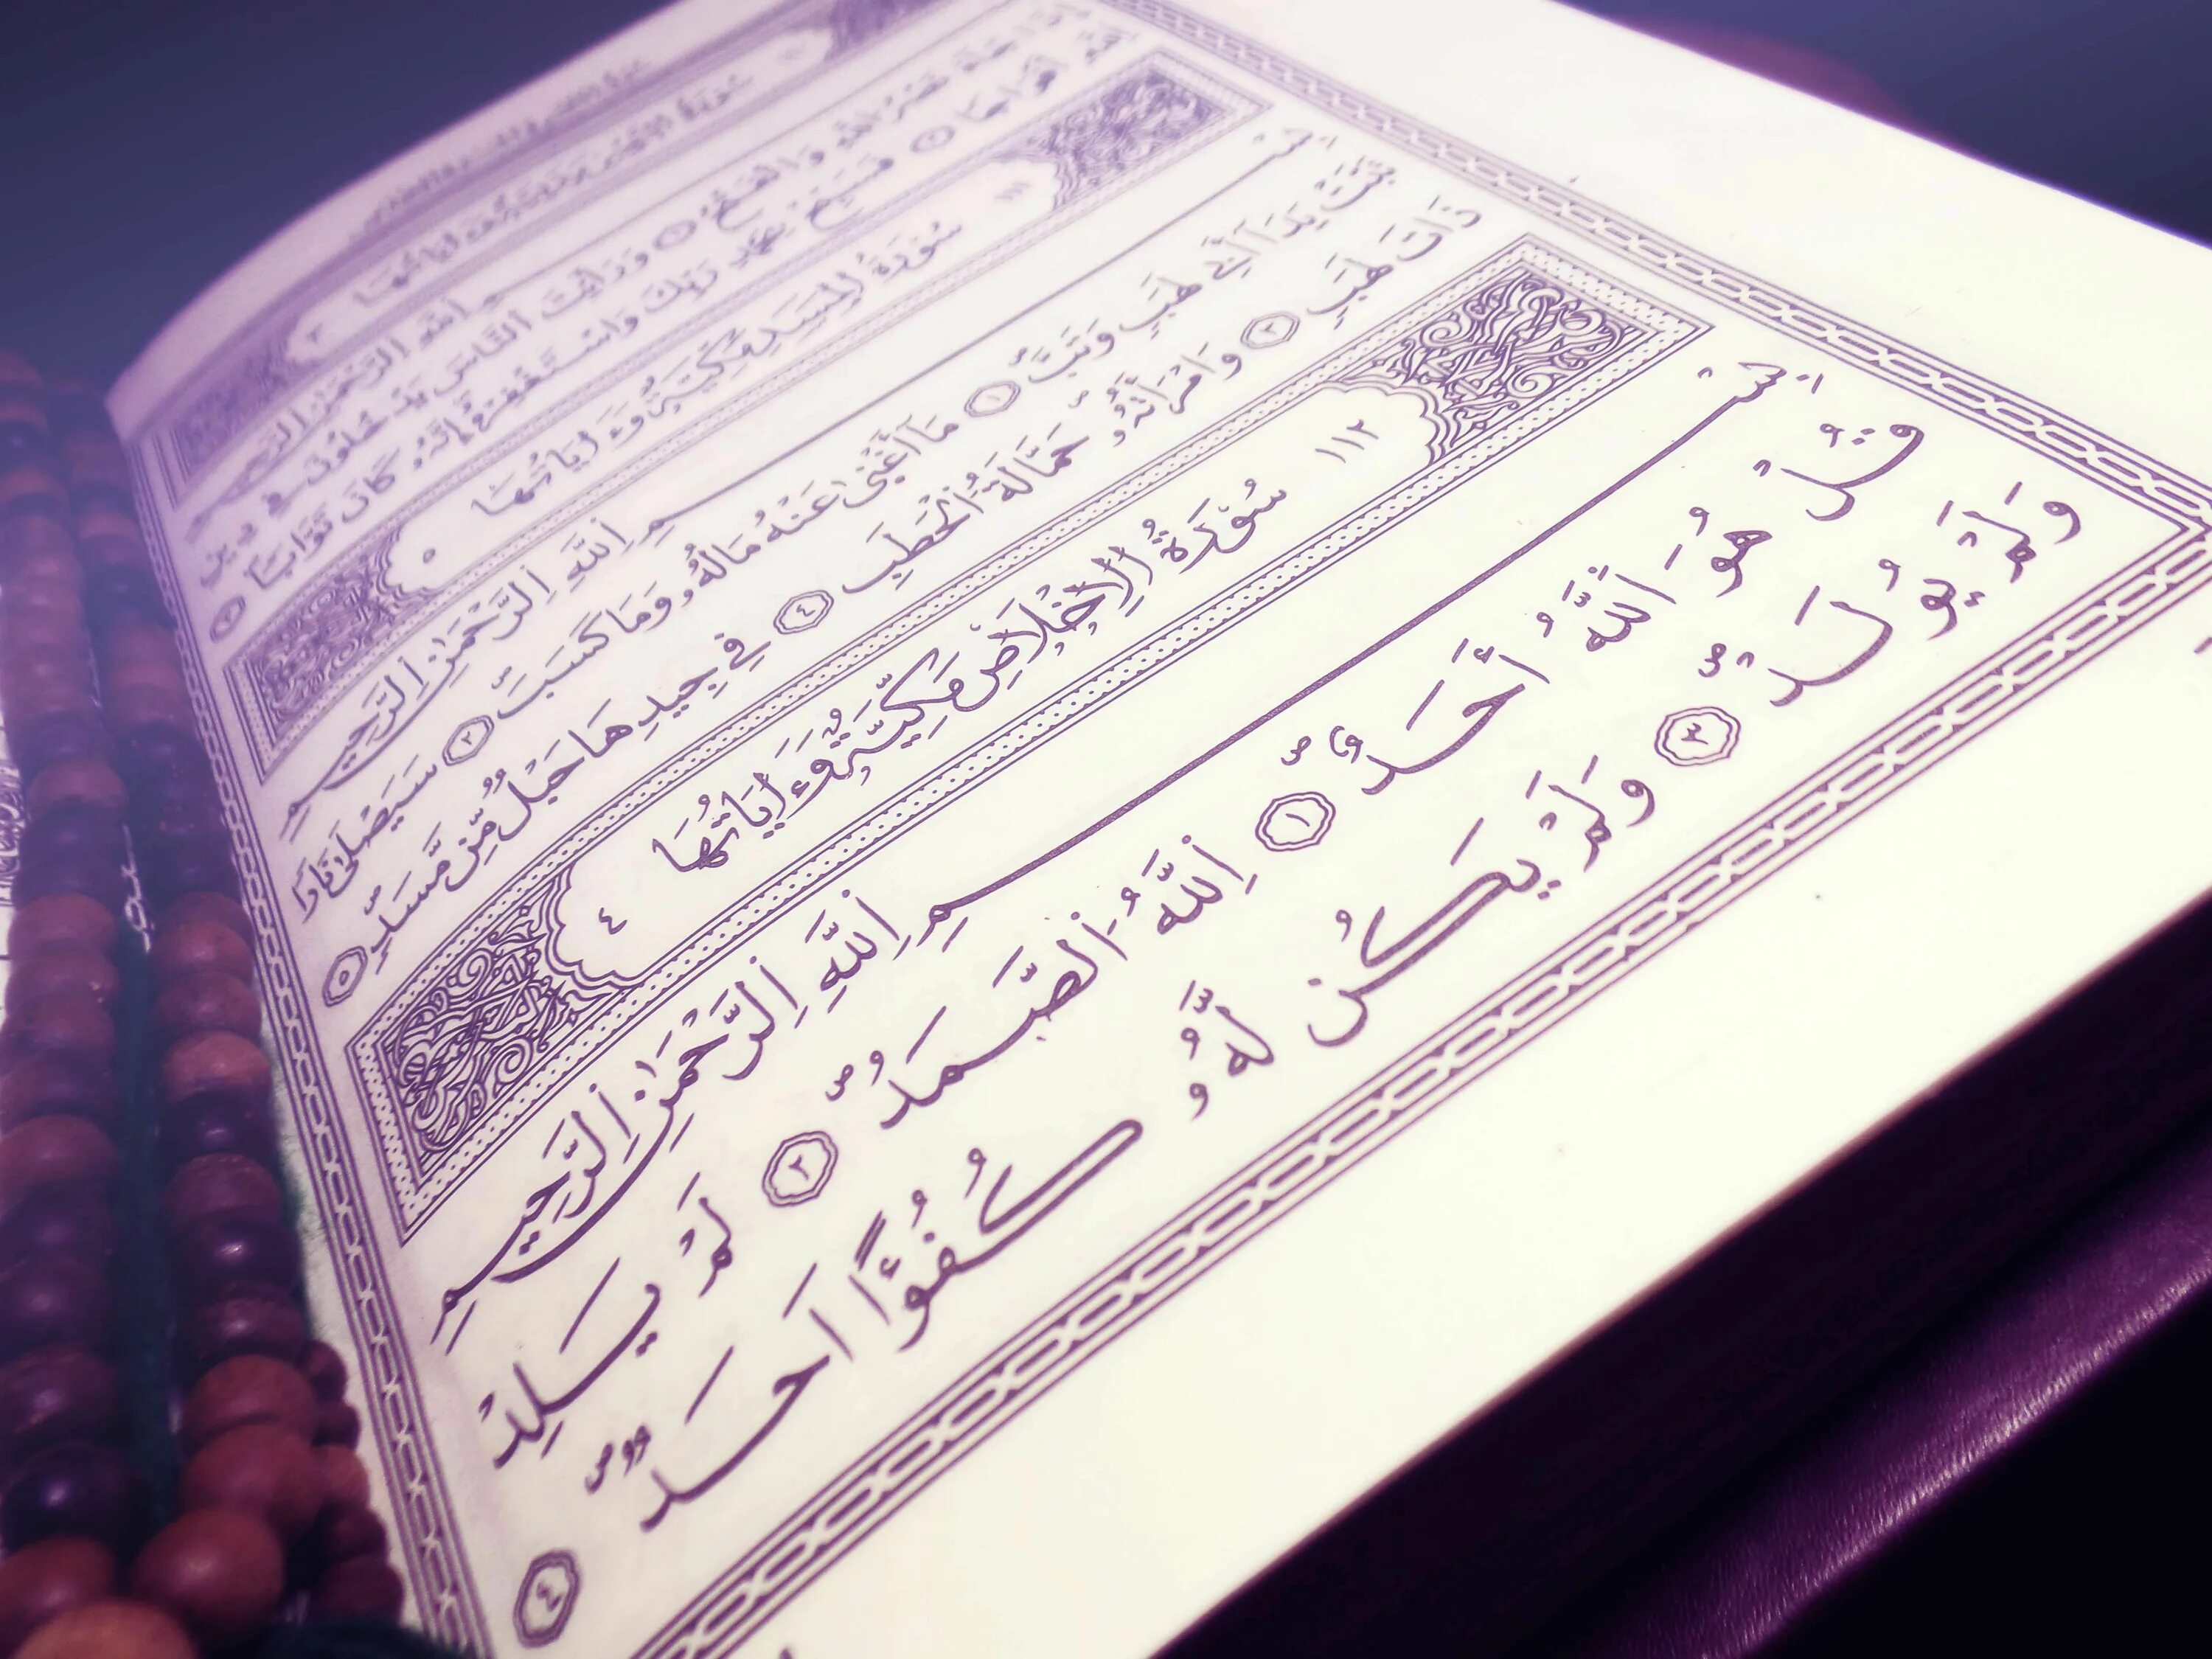 بِسْمِ اللّٰهِ الرَّحْمٰنِ الرَّحِيْمِ
نَصْرُ اللّٰهِ وَالْفَتْحُ ١ وَرَاَيْتَ النَّاسَ يَدْخُلُوْنَ فِيْ دِيْنِ
اللّٰهِ اَفْوَاجًا ٢ فَسَبِّحْ بِحَمْدِ رَبِّكَ وَاسْتَغْفِرْهُ اِنَّهُ كَانَ تَوَّابًا ٣
١١١ سُوْرَةُ الْمَسَدِ مَكِّيَّةٌ وَءَايَاتُهَا ٥
بِسْمِ اللّٰهِ الرَّحْمٰنِ الرَّحِيْمِ
تَبَّتْ يَدَآ اَبِيْ لَهَبٍ وَتَبَّ ١ مَآ اَغْنٰى عَنْهُ مَالُهُ وَمَا كَسَبَ ٢ سَيَصْلٰى نَارًا
ذَاتَ لَهَبٍ ٣ وَامْرَاَتُهُ حَمَّالَةُ الْحَطَبِ ٤ فِيْ جِيْدِهَا حَبْلٌ مِّنْ مَّسَدٍ ٥
١١٢ سُوْرَةُ الْاِخْلَاصِ مَكِّيَّةٌ وَءَايَاتُهَا ٤
بِسْمِ اللّٰهِ الرَّحْمٰنِ الرَّحِيْمِ
قُلْ هُوَ اللّٰهُ اَحَدٌ ١ اَللّٰهُ الصَّمَدُ ٢ لَمْ يَلِدْ
وَلَمْ يُوْلَدْ ٣ وَلَمْ يَكُنْ لَّهُ كُفُوًا اَحَدٌ ٤